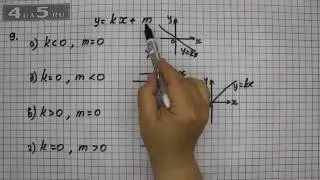 4DA5.RU
y = kx + m
9.
а) k < 0 , m = 0
y
x
0
y=kx
б) k = 0 , m < 0
в) k > 0 , m = 0
y=kx
x
г) k = 0 , m > 0